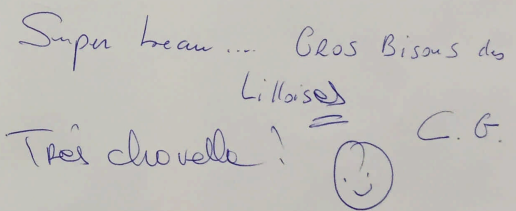 Super beau.... Gros Bisous des
Lilloises
C. G.
Très chovelle !